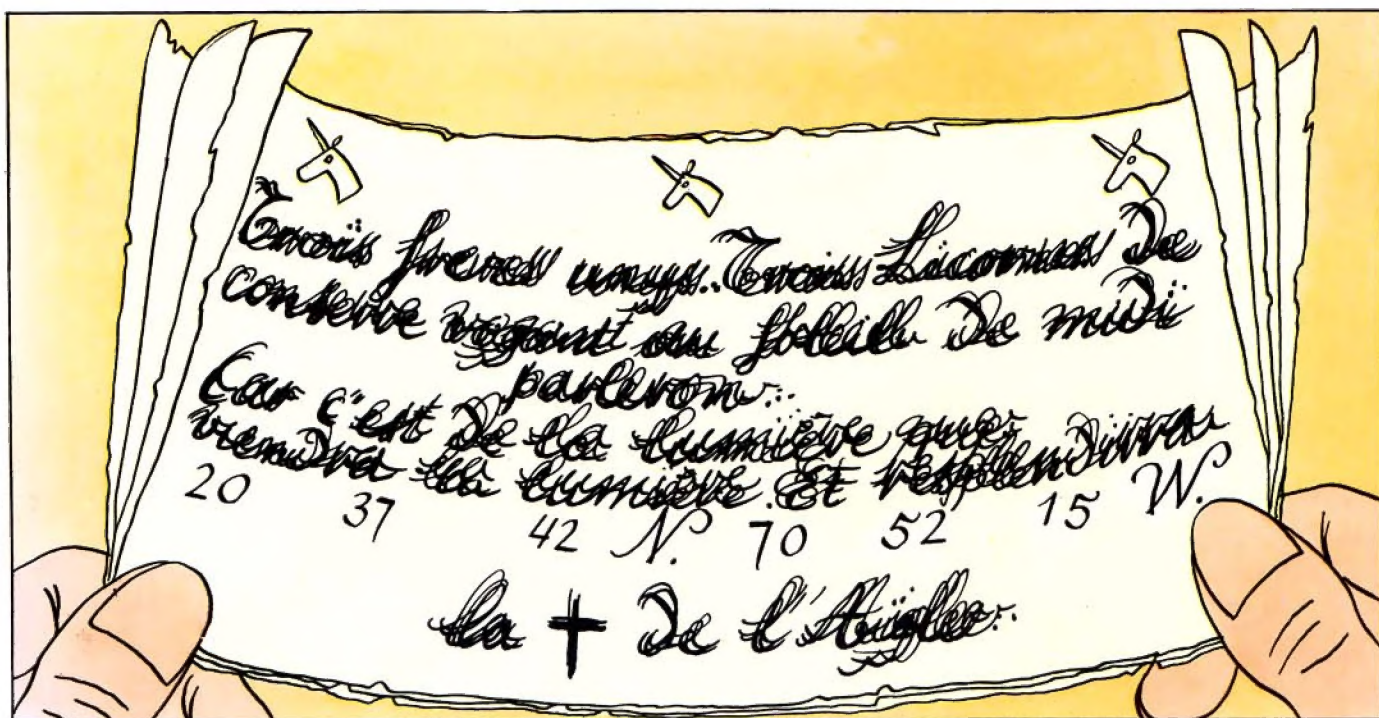 Trois freres unys. Trois Licornes de
conserve vogant au soleil de midi
parleron.
Car c'est de la lumière que
viendra la lumière. Et resplendira
20 37 42 N. 70 52 15 W.
la ✝ de l'Aigle.